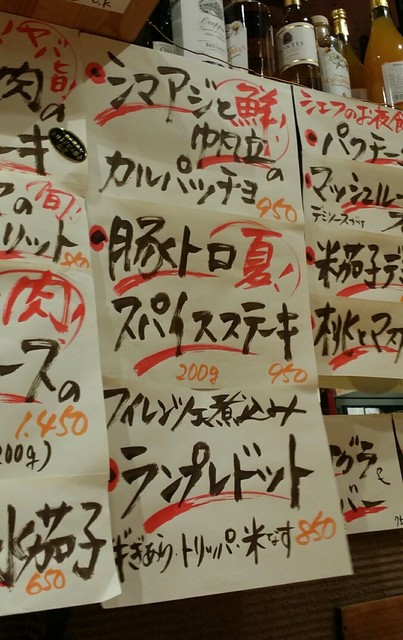 ヤバ旨!
肉の
ーキ
の旬!
リット
肉!
ーズの
1.450
200g)
水茄子
650
シマアジと鮮!
帆立の
カルパッチョ
950
豚トロ夏!
スパイスステーキ
200g 950
フィレンツェ煮込み
ランプレドット
ギアラ・トリッパ・米なす850
シェフのお夜食
パクチー
マッシュルー
デミソースがけ
米茄子デ
桃とマス
グラ
バー